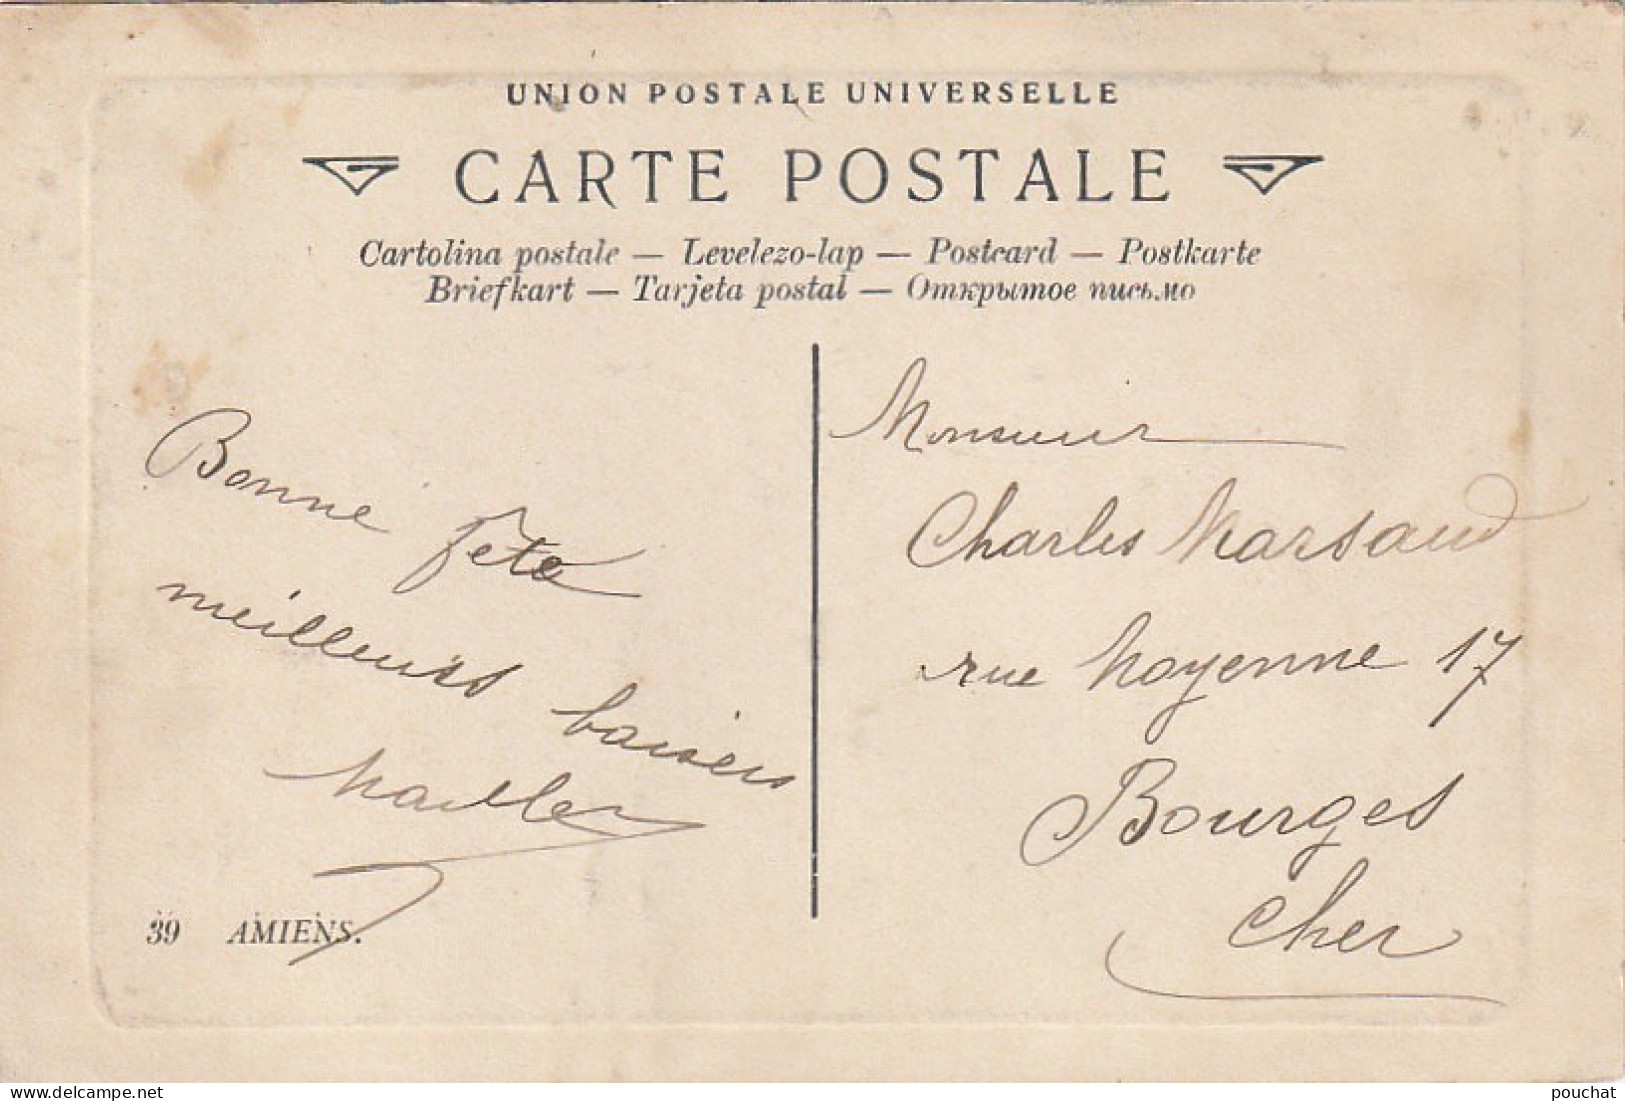 UNION POSTALE UNIVERSELLE
CARTE POSTALE
Cartolina postale — Levelezo-lap — Postcard — Postkarte
Briefkart — Tarjeta postal — Открытое письмо
Bonne fête
meilleurs baisers
39 AMIENS.
Monsieur
Charles Marsaud
rue Moyenne 17
Bourges
Cher
pouchat